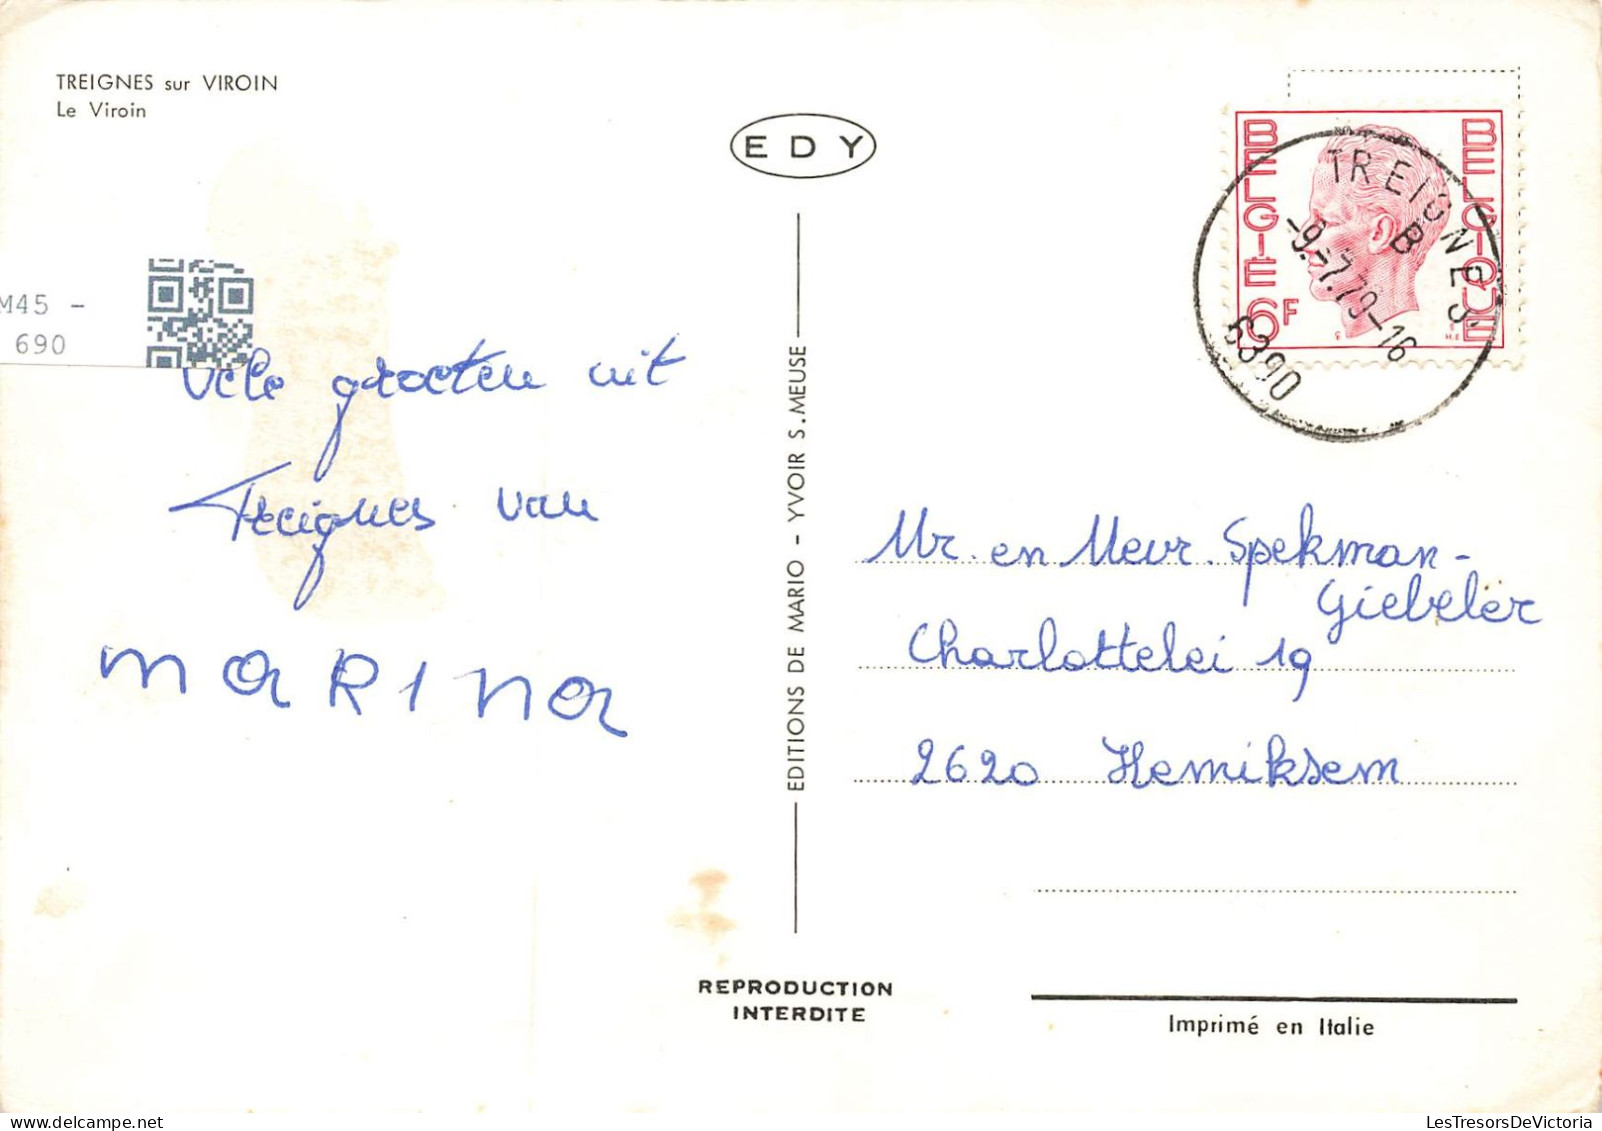 TREIGNES sur VIROIN
Le Viroin
EDY
M45 -
690
Vele groeten uit
Treignes van
MARINA
EDITIONS DE MARIO - YVOIR S.MEUSE
BELGIE
BELGIQUE
6F
TREIGNES
B
-9.-7.79-16
6390
Mr. en Mevr. Spekman-
Giebeler
Charlottelei 19
2620 Hemiksem
REPRODUCTION
INTERDITE
Imprimé en Italie
delcampe.net
LesTresorsDeVictoria